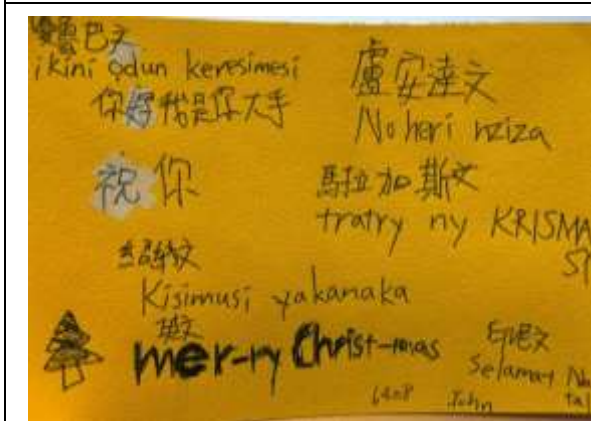 魯巴文
ikini odun keresimesi
你好我是你大手
祝你
盧安達文
Noheri nziza
馬拉加斯文
tratry ny KRISMA
紹納文
Kisimusi yakanaka
英文
mer-ry Christ-mas
印尼文
Selamat Na
tal
John